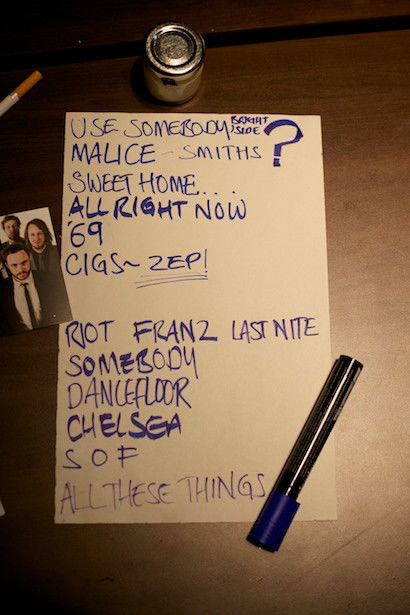 USE SOMEBODY BRIGHT SIDE ?
MALICE - SMITHS
SWEET HOME...
ALL RIGHT NOW
'69
CIGS~ ZEP!
RIOT FRANZ LAST NITE
SOMEBODY
DANCEFLOOR
CHELSEA
S O F
ALL THESE THINGS